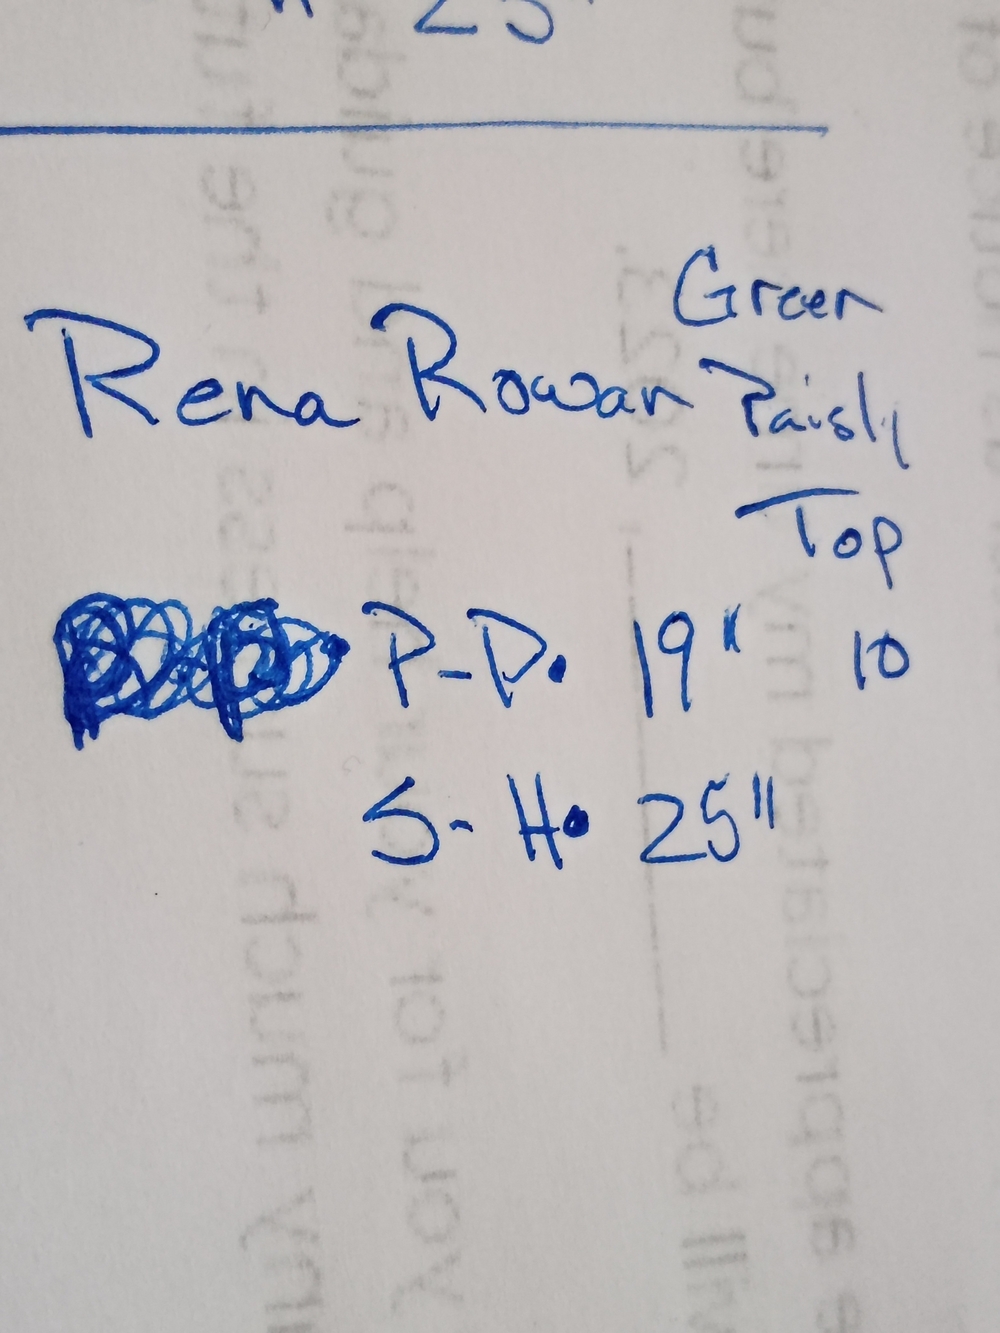 25"
Rena Rowan Green
Paisly
Top
P-P. 19" 10
S- H. 25"